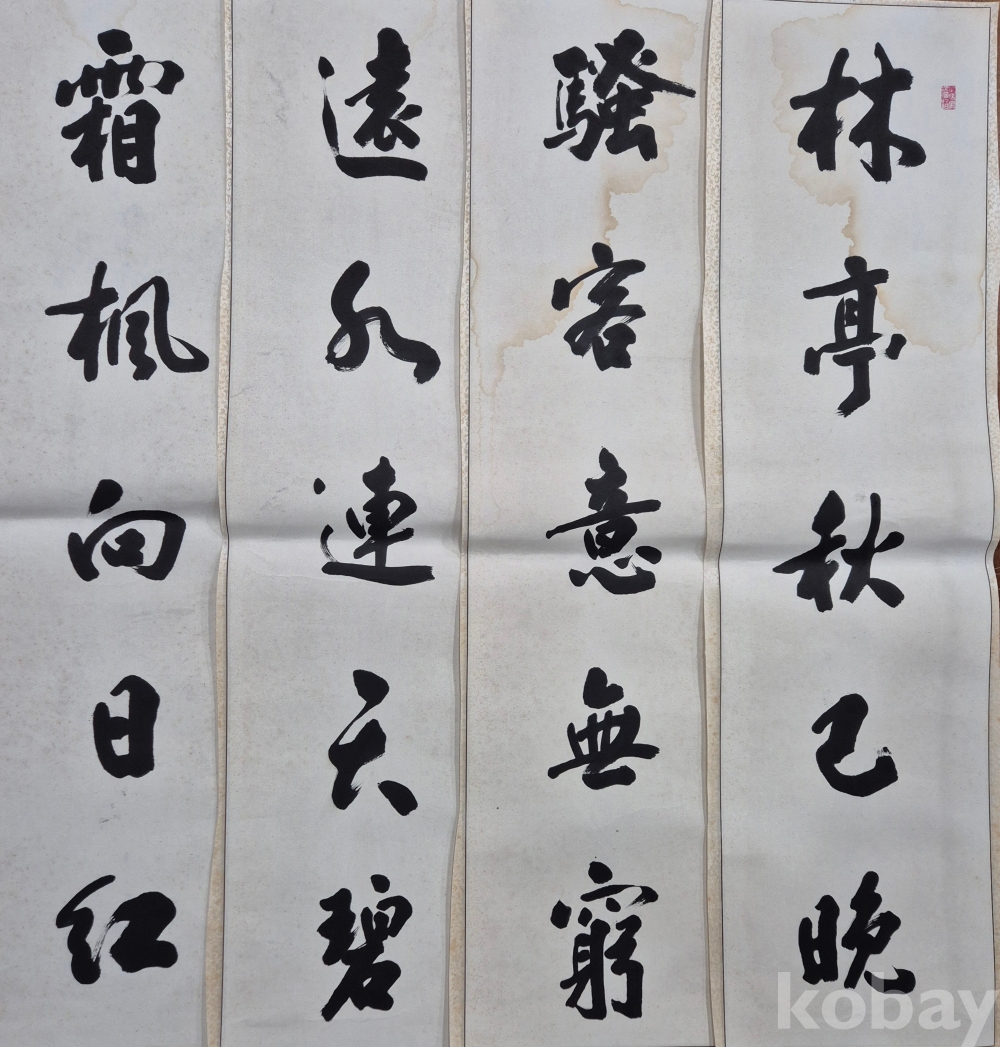 林亭秋已晚
騷客意無窮
遠水連天碧
霜楓向日紅
kobay